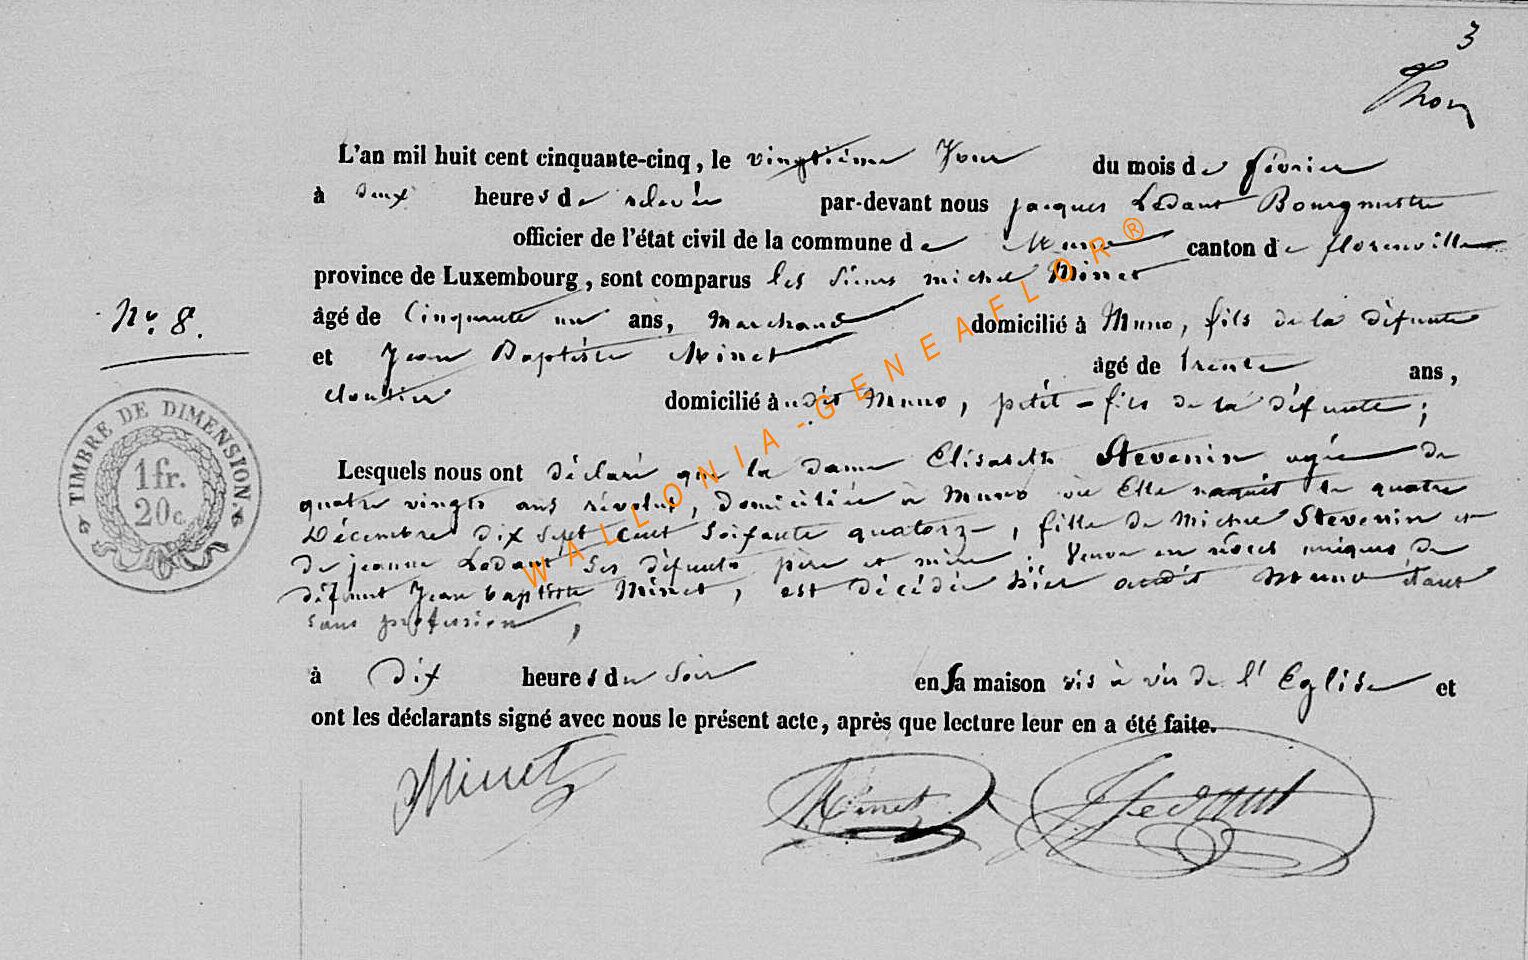 3
Thon
L'an mil huit cent cinquante-cinq, le vingtième Jour du mois de février
à deux heures de relevée par-devant nous jacques Ledant Bourgmestre
officier de l'état civil de la commune de Muno canton de florenville
province de Luxembourg, sont comparus les Sieurs michel Minet
No. 8. âgé de Cinquante un ans, Marchand domicilié à Muno, fils de la défunte
et Jean Baptiste Minet âgé de trente ans,
cloutier domicilié à udit Muno, petit-fils de la défunte;
TIMBRE DE DIMENSION.
1 fr.
20 c.
Lesquels nous ont déclaré que la dame Elisabeth Stevenin agée de
quatre vingts ans révolus, domiciliée à Muno où Elle naquit le quatre
Décembre dix Sept Cent Soixante quatorze, fille de Michel Stevenin et
de jeanne Ledant Ses défunts père et mère; Veuve en nôces uniques de
défunt Jean baptiste Minet, est décédée hier audit Muno étant
sans profession,
à Dix heures du Soir en Sa maison vis à vis de l'Eglise et
ont les déclarants signé avec nous le présent acte, après que lecture leur en a été faite.
Minet Minet J Ledant
WALLONIA-GENEAFLOR®